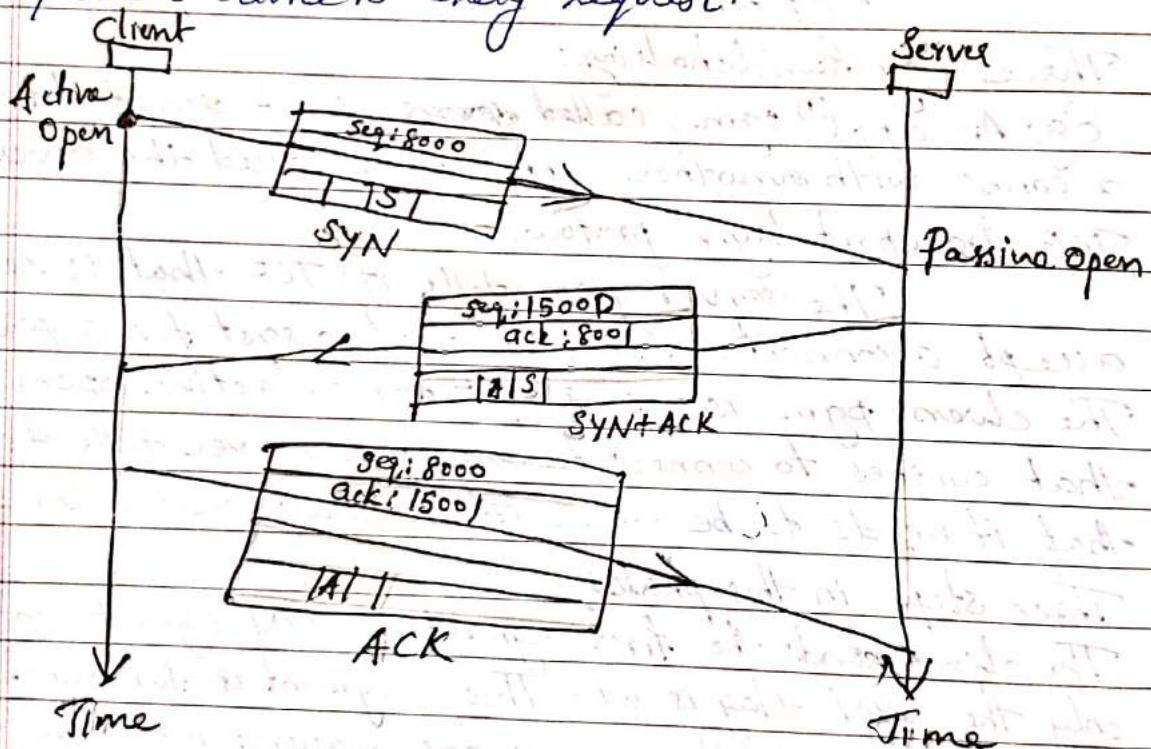 request.
Client
Server
Active
Open
seq: 8000
S
SYN
Passive Open
seq: 15000
ack: 8001
A S
SYN+ACK
seq: 8000
ack: 15001
A
ACK
Time
Time